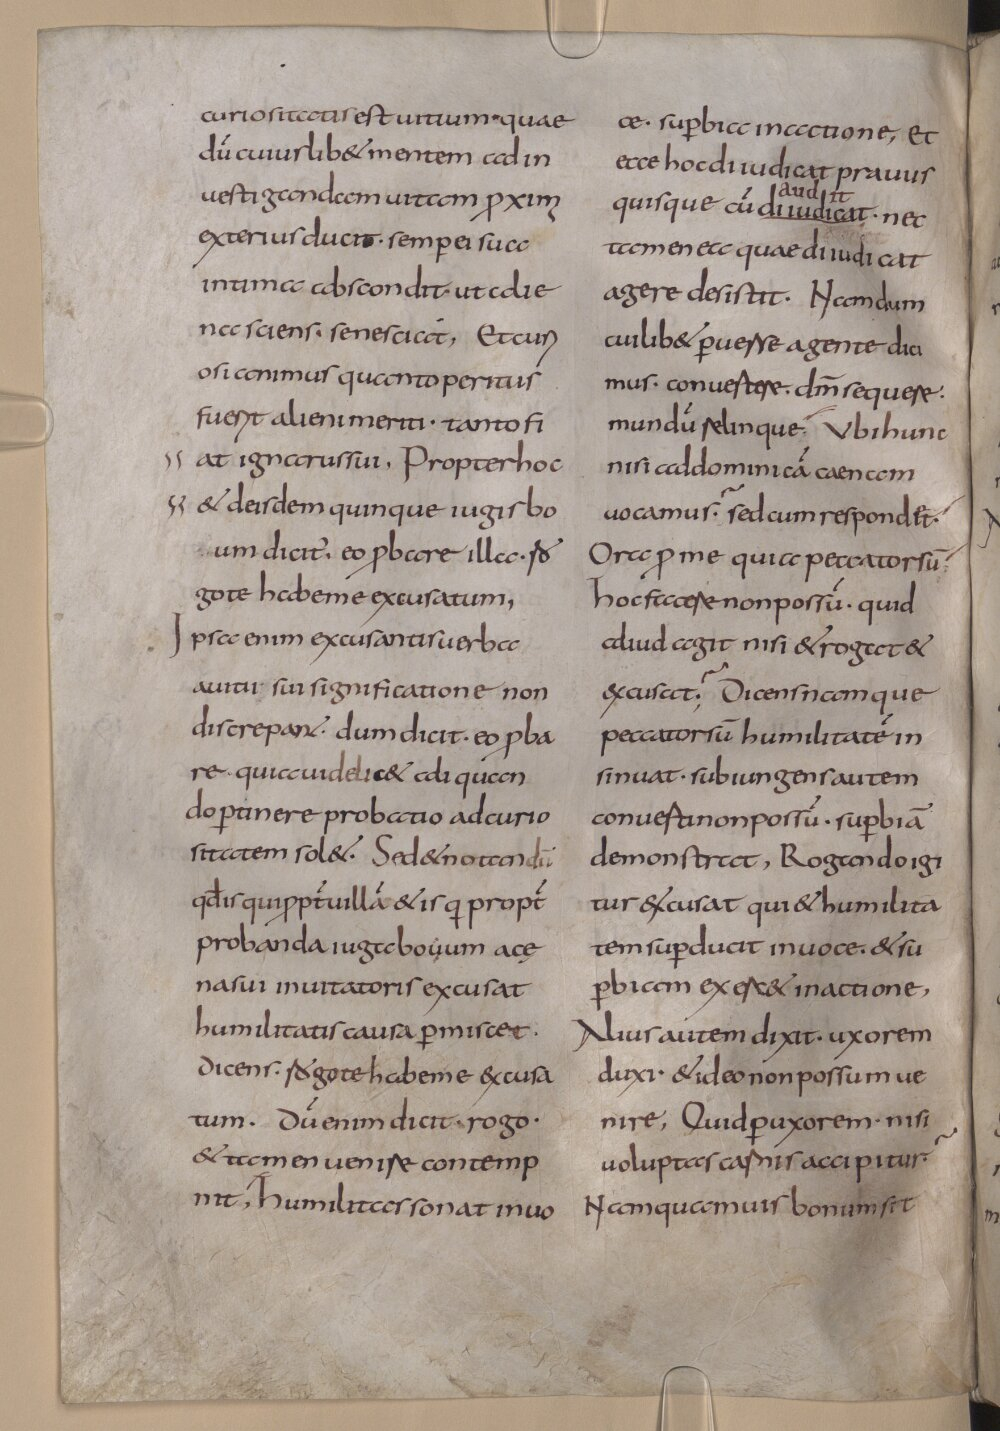 curiositatis est uitium· quae
dū cuiuslib& mentem ad in
uestigandam uitam ꝓximi
exterius ducit· semper ei sua
intima abscondit· ut alie
na sciens· se nesciat, Et curi
osi animus quanto peritus
fuerit alieni meriti· tanto fi
at ignarus sui, Propter hoc
& de isdem quinque iugis bo
um dicit, eo ꝓbare illa· ro
go te habe me excusatum,
Ipsa enim excusantis uerba
a uitii sui significatione non
discrepant· dum dicit· eo ꝓba
re· quia uidelic& aliquan
do ꝑtinere probatio ad curio
sitatem sol&· Sed & notandū
qđ is qui ꝓpt̄ uillā & is q ꝓpt̄
probanda iuga bouum a cę
na sui inuitatoris excusat
humilitatis causa ꝑmiscet·
Dicens· rogo te habe me excusa
tum· Dū enim dicit· rogo·
& tamen uenire contemp
nit, humilitas sonat in uo
ce· suꝑbia in actione, Et
ecce hoc diiudicat prauus
audit
quisque cū diiudicat· nec
tamen ea quae diiudicat
agere desistit· Nam dum
cuilib& ꝑuerse agente dici
mus· conuertere· dm̄ sequere·
mundū relinque· Vbi hunc
nisi ad dominicā caenam
uocamus· sed cum respond&·
Ora ꝓ me quia peccator sū·
hoc facere non possū· quid
aliud agit nisi & rogat &
excusat· Dicens namque
peccator sū humilitatē in
sinuat· subiungens autem
conuerti non possū· suꝑbiā
demonstrat, Rogando igi
tur & excusat qui & humilita
tem suꝑducit in uoce· & su
ꝑbiam exerc& in actione,
Alius autem dixit· uxorem
duxi· & ideo non possum ue
nire, Quid ꝑ uxorem· nisi
uoluptas carnis accipitur·
Nam quamuis bonum sit